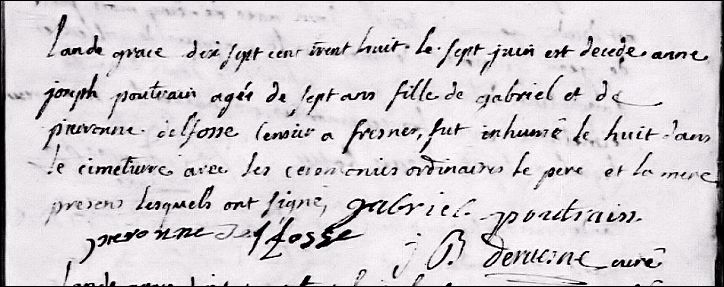 lan de grace dix sept cent trent huit le sept juin est decedé anne
joseph poutrain agée de sept ans fille de gabriel et de
pieronne delfosse censier a fresnes, fut inhumé le huit dans
le cimetierre avec les ceremonies ordinaires le pere et la mere
presens lesquels ont signé, gabriel poutrain
pieronne delfosse j B curé
lan de grace